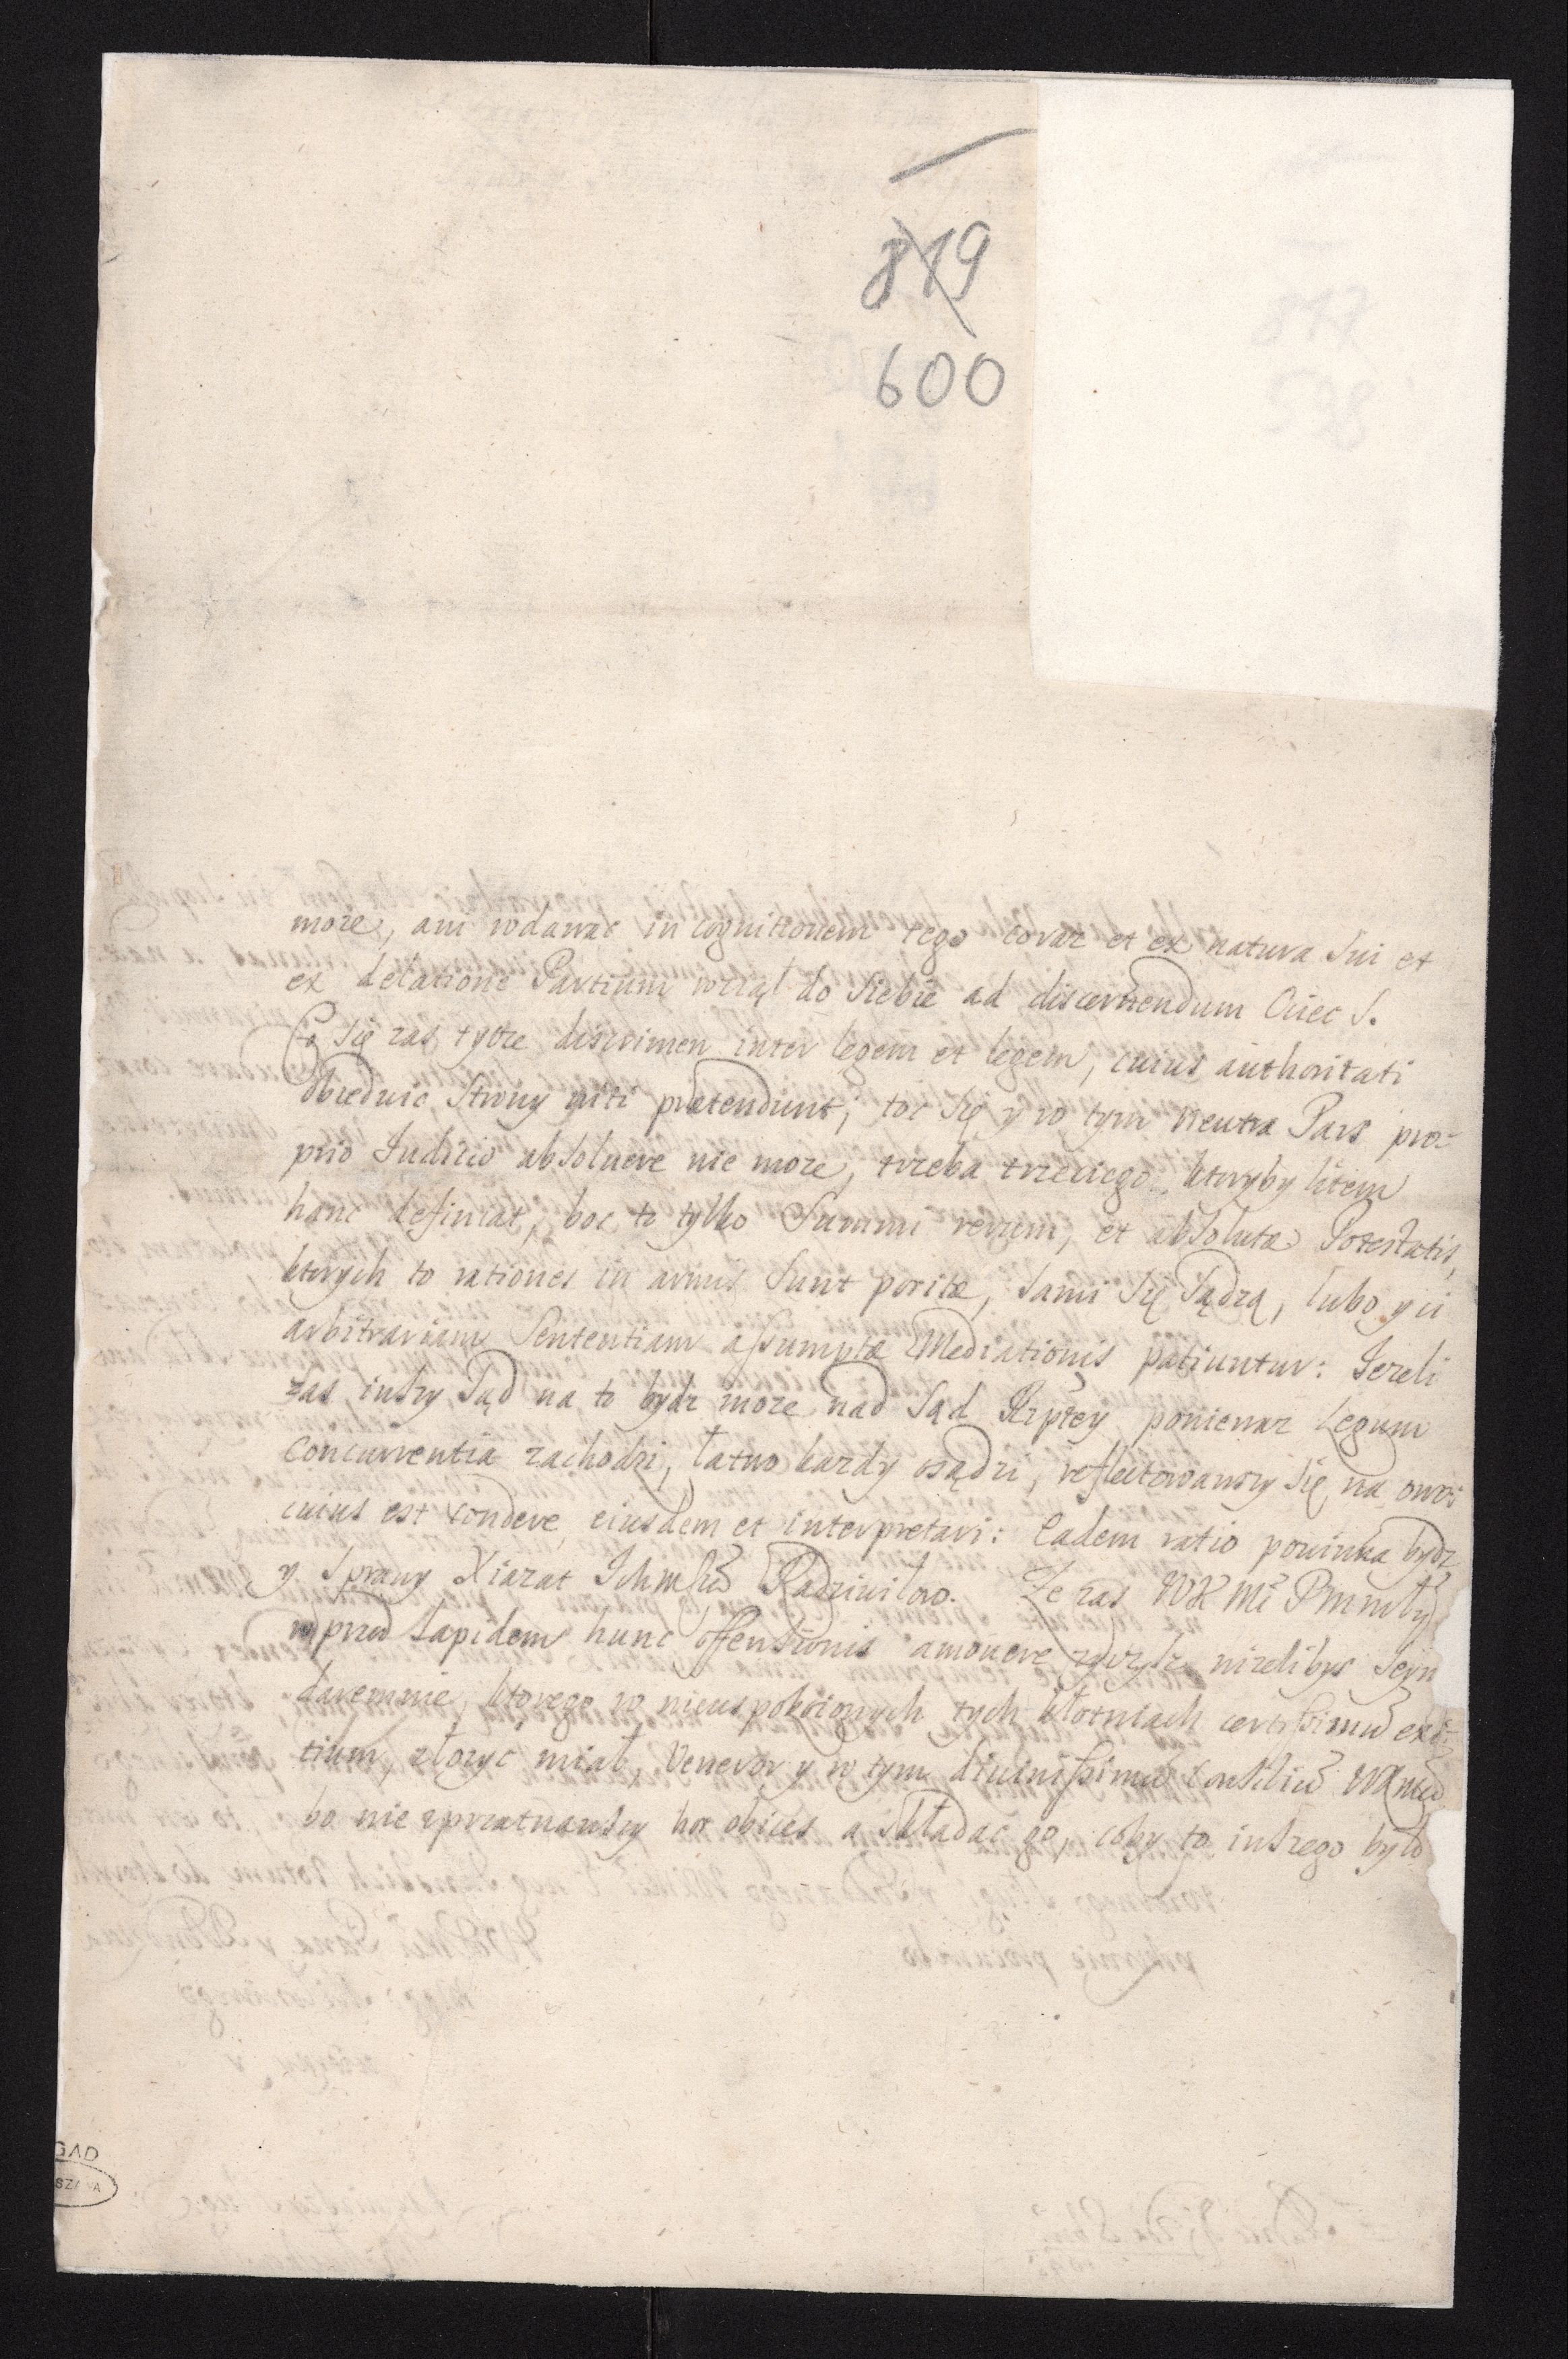 819
600
more, ani wdawac in cognitionem tego coraz et ex natura sui et
ex delatione Partium wziąl do siebie ad discernendum Ciec S.
Co się zas tycze discrimen inter legem et legem, cuius authoritati
obiedwie Strony niti prætendunt, toc się y w tym neutra Pars pro=
prio Iudicio absoluere nie moze, trzeba trzeciego, ktoryby litem
hanc definiat, boc to tylko Summi rerum, et absolutæ Potestatis,
ktorych to rationes in armis sunt positæ, sami się sądzą, lubo y ii
arbitrariam Sententiam assumptæ Mediationis patiuntur: Iezeli
zas inszy Sąd na to bydz moze nad Sąd Rzptey poniewaz Legum
concurrentia zachodzi, łatwo kazdy osądzi, reflectowawszy się na owo:
cuius est condere, eiusdem et interpretari: Eadem ratio powinna bydz
y Sprawy Xiazat Ichmsciũ Radziwilow. Ze zas WKMć PMmłỹ
wprzod Lapidem hunc offensionis amouere zyczysz nizelibys Seym
daremnie, ktorego w nieuspokoionych tych kłotniach certissimũ exi=
tium, złozyc miał, Veneror y w tym diuinissimũ Consiliũ WKMci
bo nie zprzatnawszy hos obices a składac go, coby to inszego bylo
GAD
SZAWA